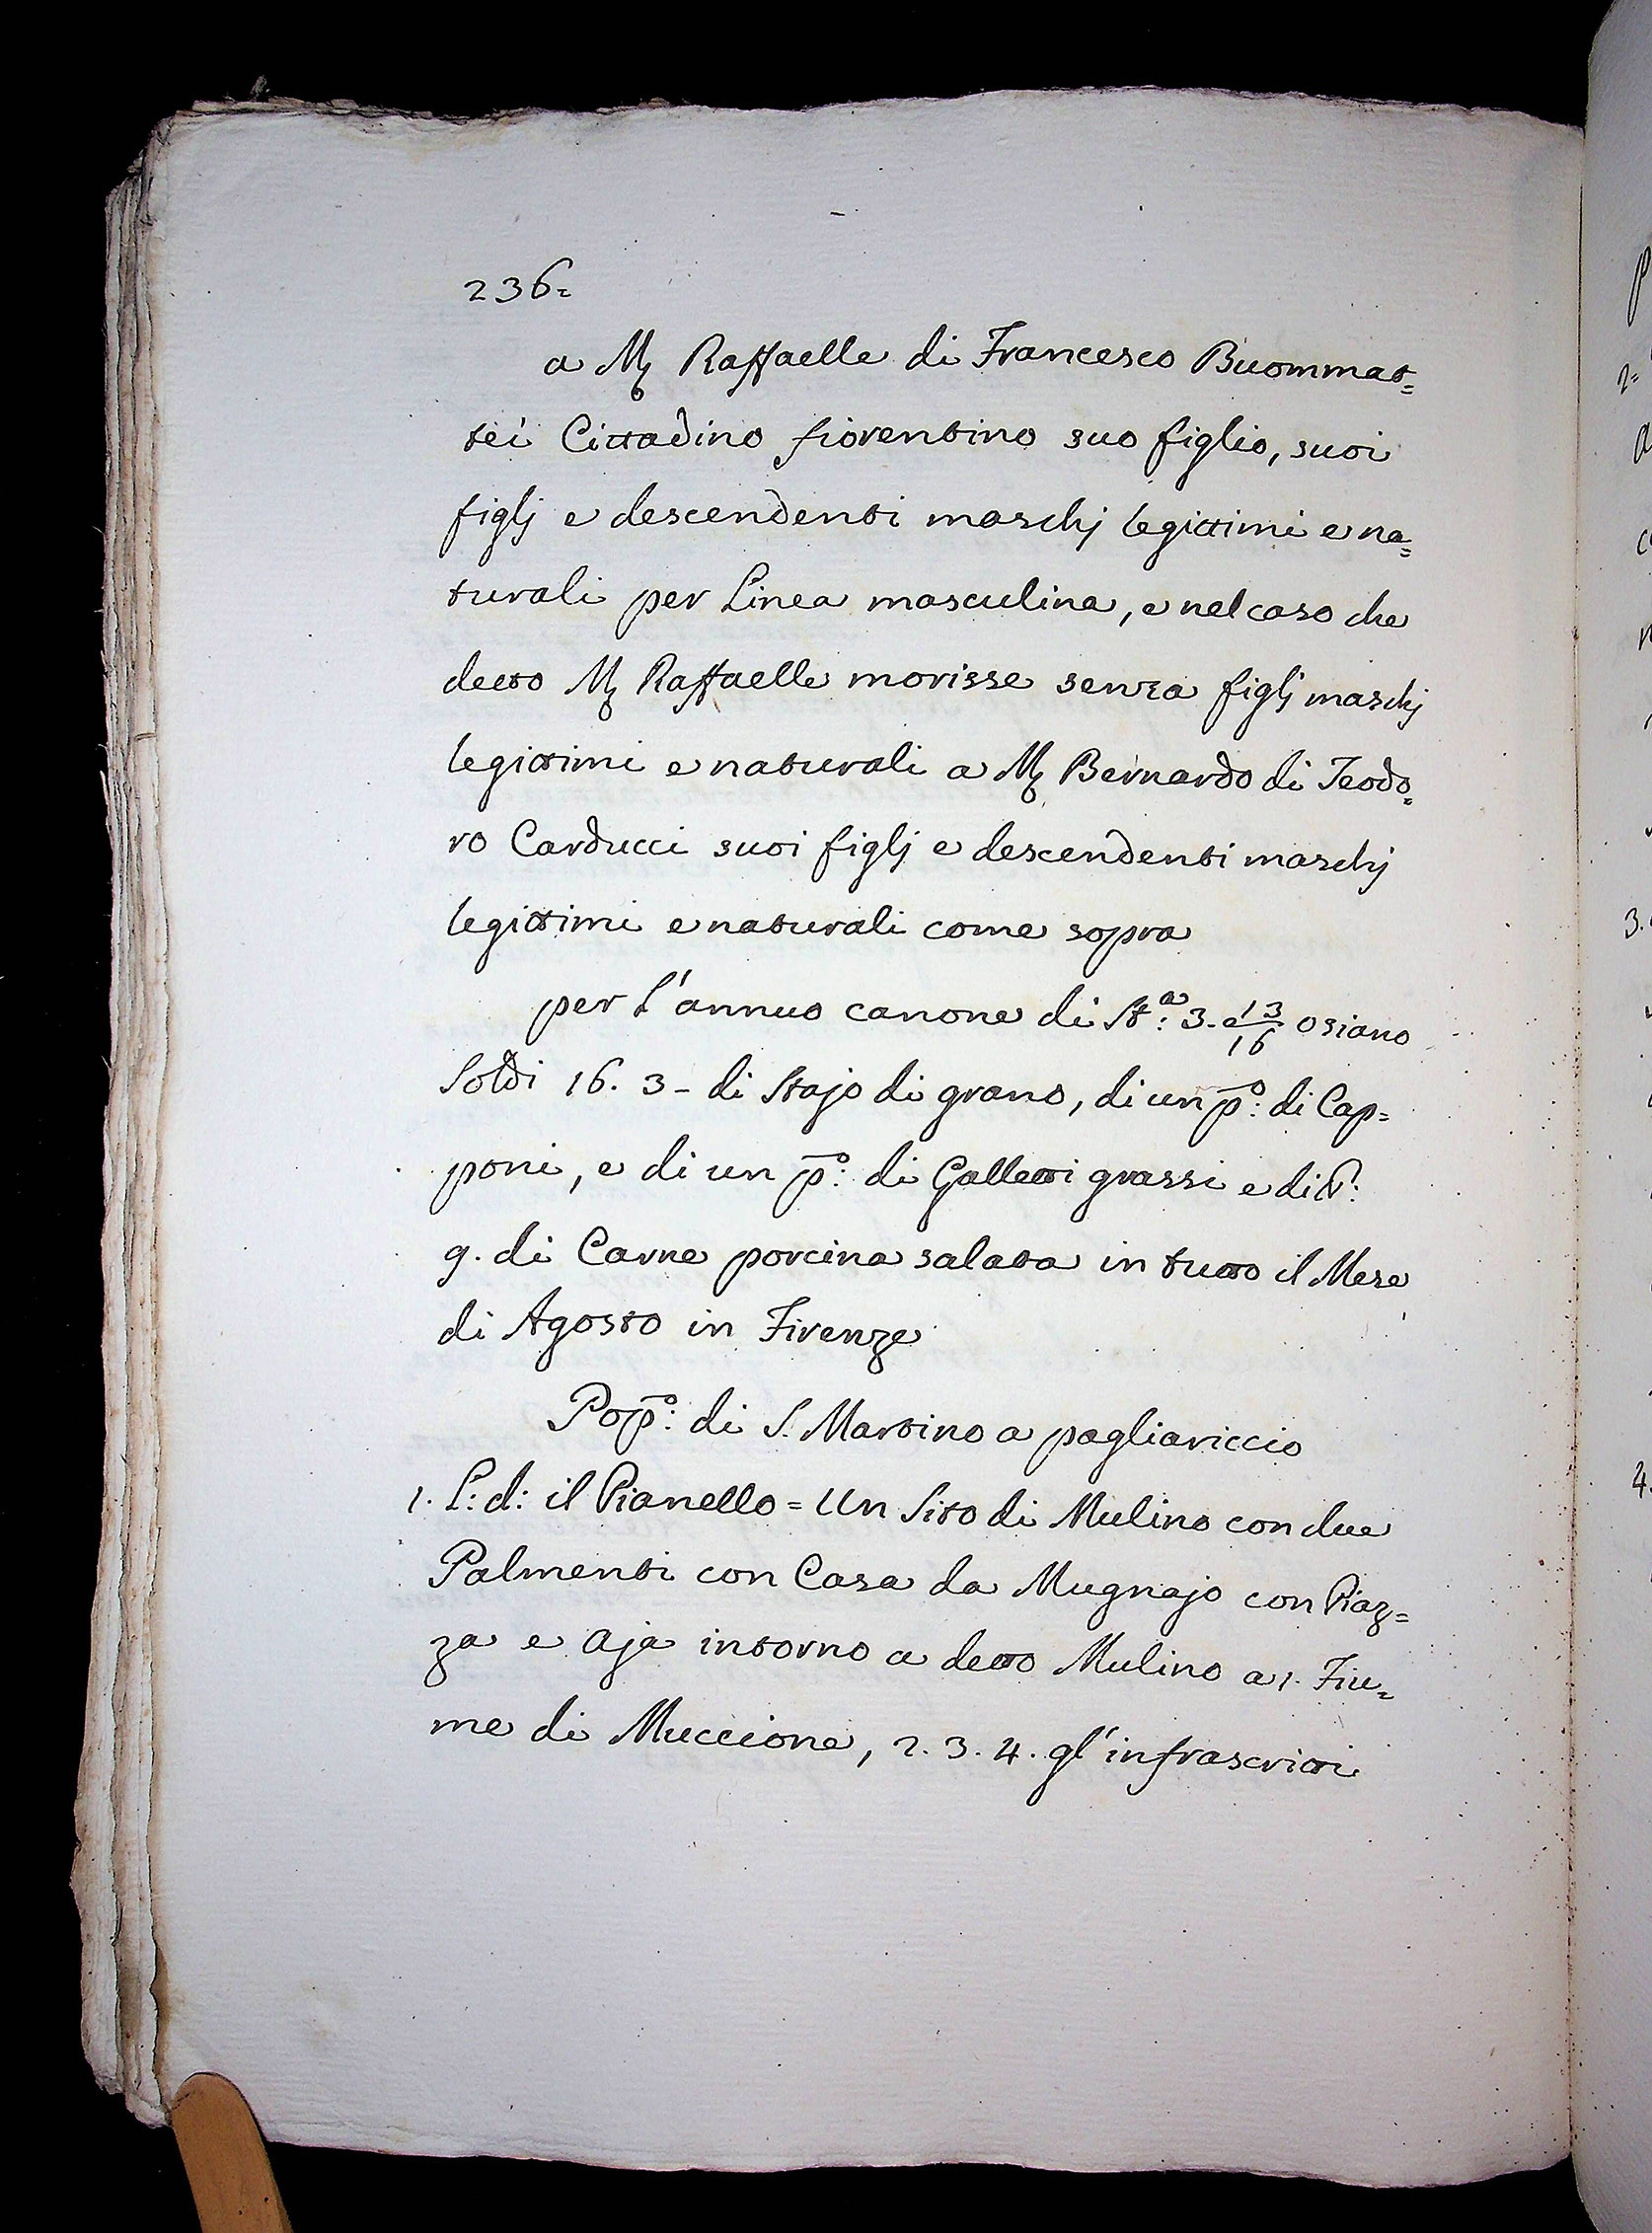 236=
a M. Raffaelle di Francesco Buommat=
tei Cittadino fiorentino suo figlio, suoi
figlj e descendenti maschj legittimi e na=
turali per Linea masculina, e nel caso che
detto M. Raffaelle morisse senza figlj maschj
legittimi e naturali a M. Bernardo di Teodo=
ro Carducci suoi figlj e descendenti maschj
legittimi e naturali come sopra
per l'annuo canone di St.ª: 3. e 13/16 o siano
Soldi 16. 3 - di Stajo di grano, di un p.º: di Cap=
poni, e di un p.º: di Galletti grassi e di
9. di Carne porcina salata in tutto il Mese
di Agosto in Firenze
Pop.º: di S. Martino a pagliariccio
1. L: d: il Pianello = Un Sito di Mulino con due
Palmenti con Casa da Mugnajo con Piaz=
za e Aja intorno a detto Mulino a 1. Fiu=
me di Muccione, 2. 3. 4. gl'infrascritti
2=
3.
4.